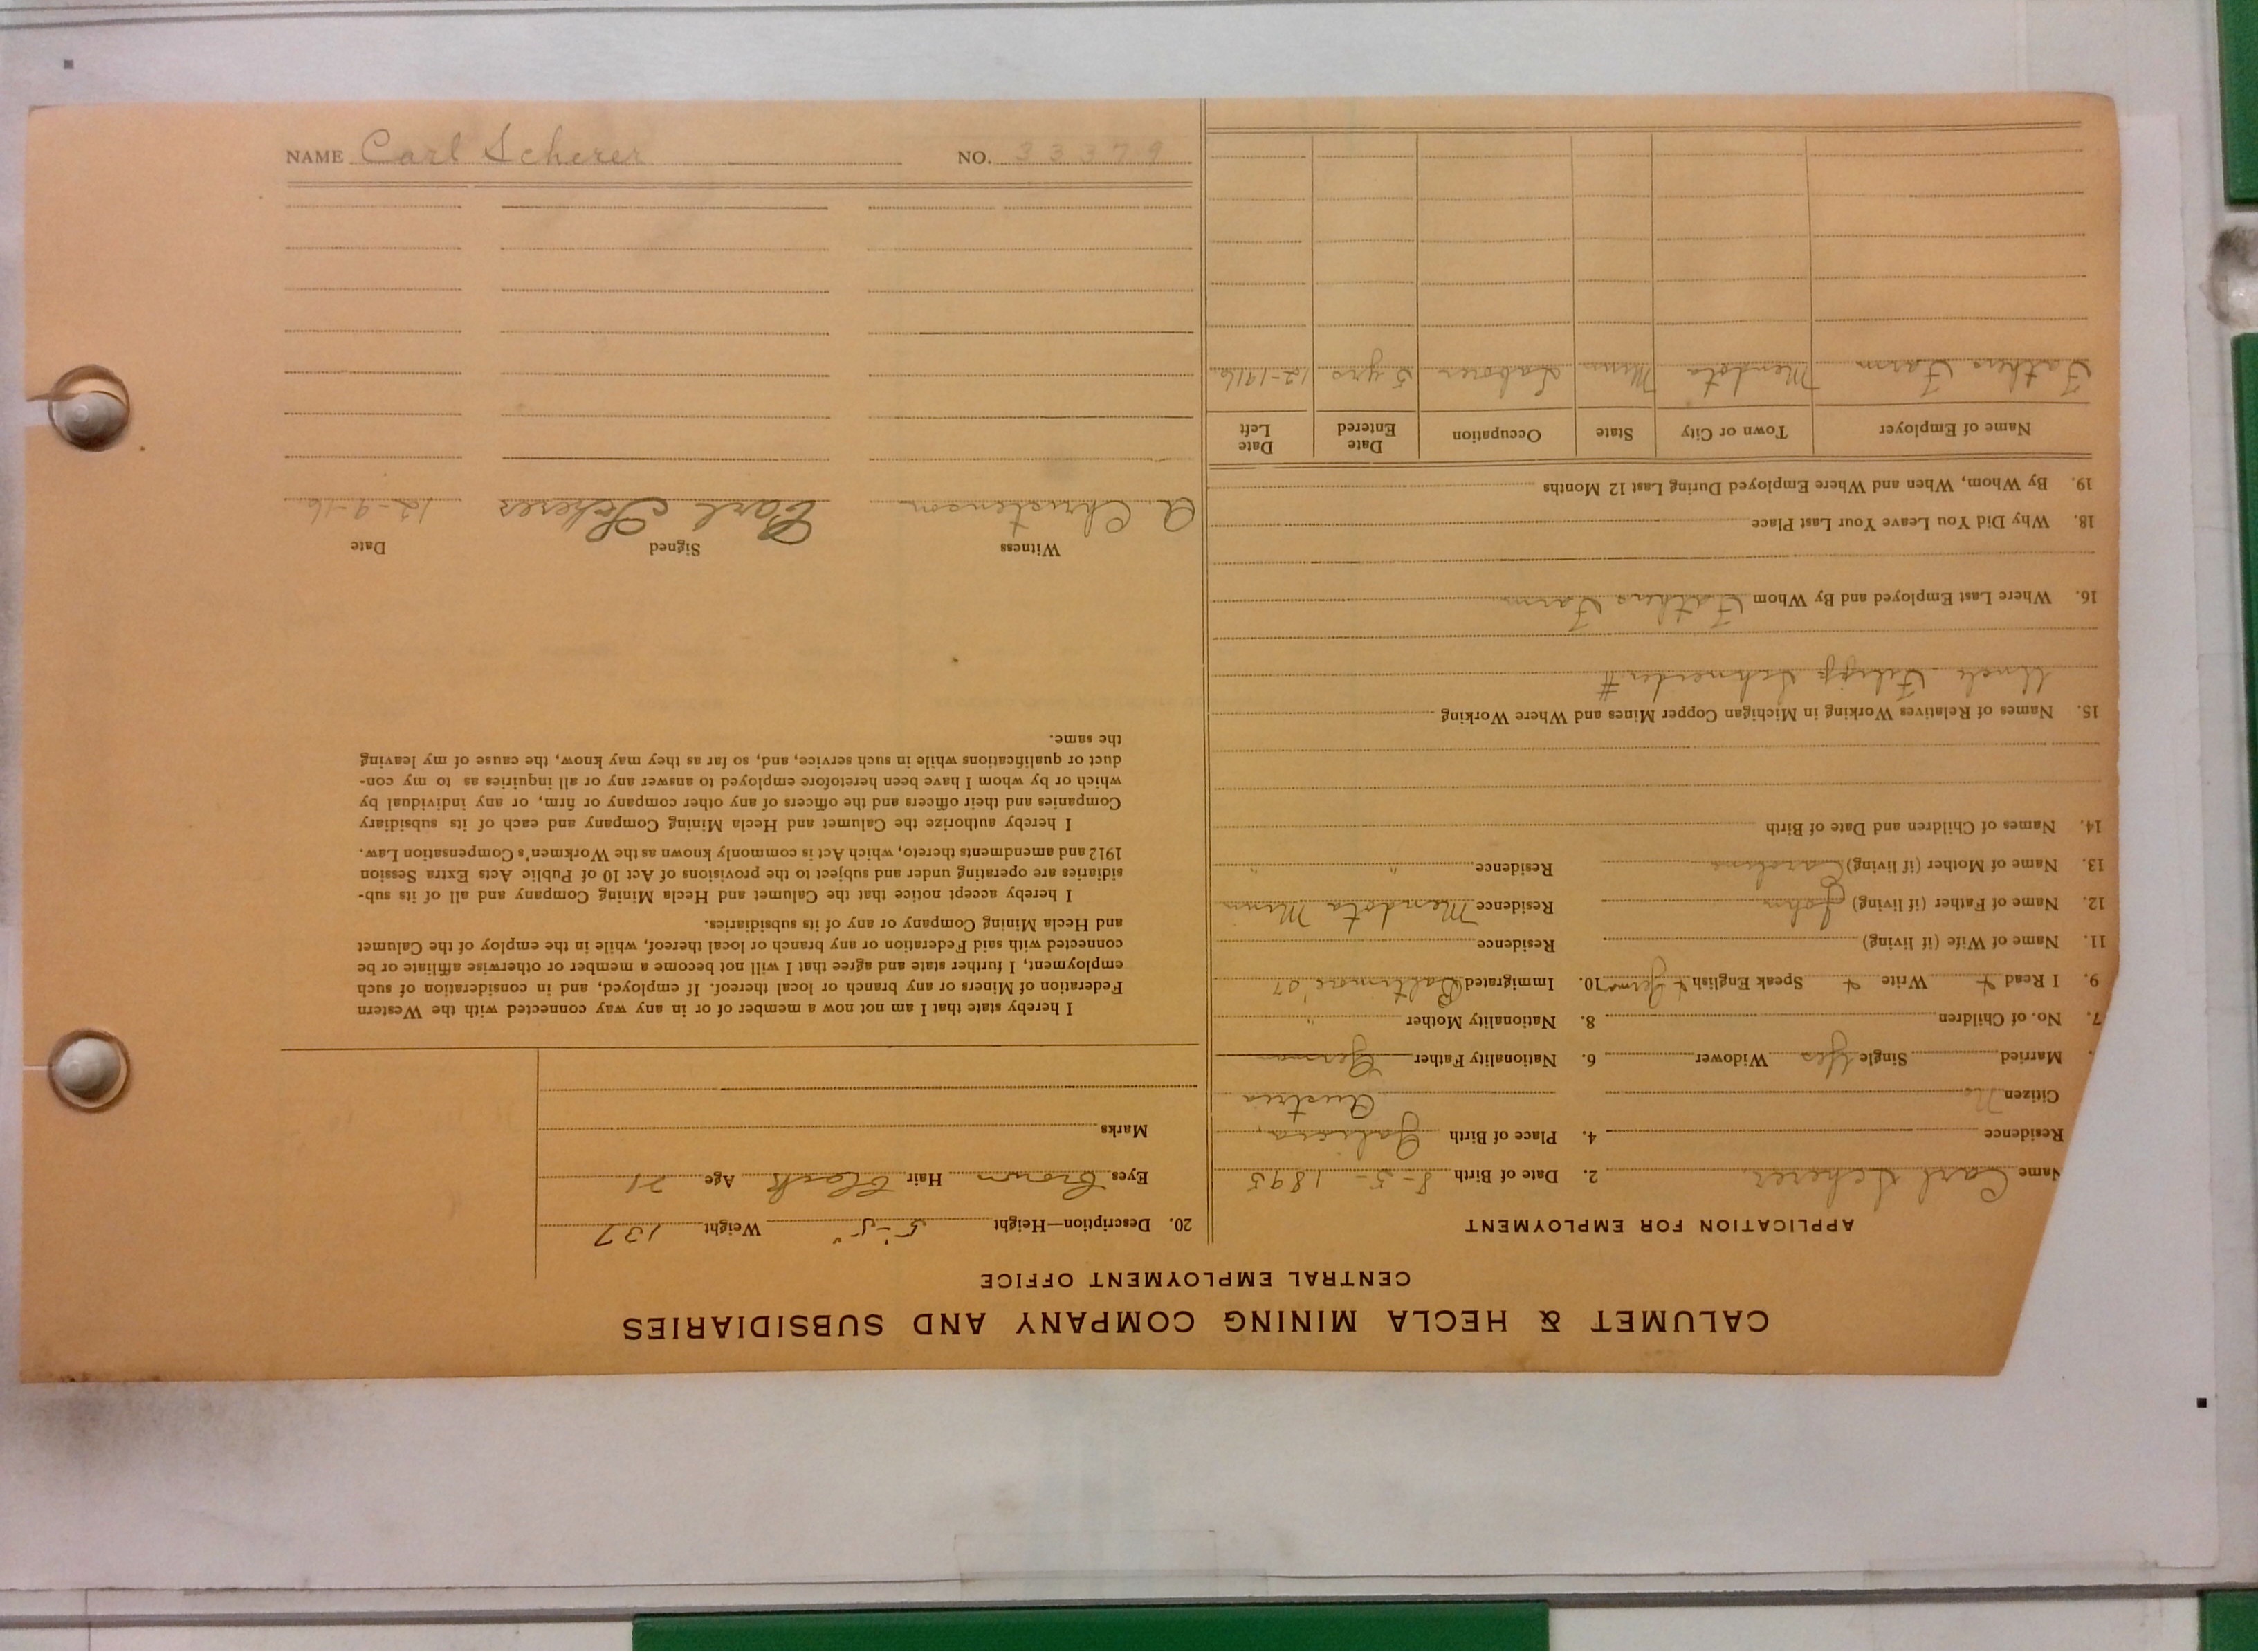 CALUMET & HECLA MINING COMPANY AND SUBSIDIARIES
CENTRAL EMPLOYMENT OFFICE
APPLICATION FOR EMPLOYMENT
Name Carl Scherer 2. Date of Birth 8-5-1895
Residence 4. Place of Birth Galicia,
Citizen No Austria
Married Single Yes Widower 6. Nationality Father German
7. No. of Children 8. Nationality Mother "
9. I Read + Write + Speak English + German 10. Immigrated Baltimore '07
11. Name of Wife (if living) Residence
12. Name of Father (if living) John Residence Mendota Minn
13. Name of Mother (if living) Caroline Residence " "
14. Names of Children and Date of Birth
15. Names of Relatives Working in Michigan Copper Mines and Where Working
Uncle Filipp Schneider #
16. Where Last Employed and By Whom Fathers Farm
18. Why Did You Leave Your Last Place
19. By Whom, When and Where Employed During Last 12 Months
Name of Employer Town or City State Occupation Date Entered Date Left
Fathers Farm Mendota Minn Laborer 5 yrs 12-1916
20. Description—Height 5'-5" Weight 137
Eyes brown Hair black Age 21
Marks
I hereby state that I am not now a member of or in any way connected with the Western
Federation of Miners or any branch or local thereof. If employed, and in consideration of such
employment, I further state and agree that I will not become a member or otherwise affiliate or be
connected with said Federation or any branch or local thereof, while in the employ of the Calumet
and Hecla Mining Company or any of its subsidiaries.
I hereby accept notice that the Calumet and Hecla Mining Company and all of its sub-
sidiaries are operating under and subject to the provisions of Act 10 of Public Acts Extra Session
1912 and amendments thereto, which Act is commonly known as the Workmen's Compensation Law.
I hereby authorize the Calumet and Hecla Mining Company and each of its subsidiary
Companies and their officers and the officers of any other company or firm, or any individual by
which or by whom I have been heretofore employed to answer any or all inquiries as to my con-
duct or qualifications while in such service, and, so far as they may know, the cause of my leaving
the same.
Witness Signed Date
A. Christenson Carl Scherer 12-9-16
NAME Carl Scherer NO. 33379